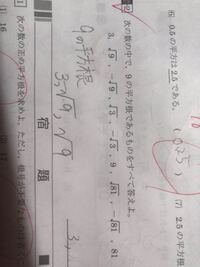 (6) 0.5の平方は2.5である。
( 025 )
(7) 2.5の平方根
次の数の中で、9の平方根であるものをすべて答えよ。
3, √9, -√9, √3, -√3, 9, √81, -√81, 81
9の平方根
3, √9, √9
3,
宿 題
1 次の数の正の平方根を求めよ。ただし、根号が不要なものは
(1) 16
(2) 17